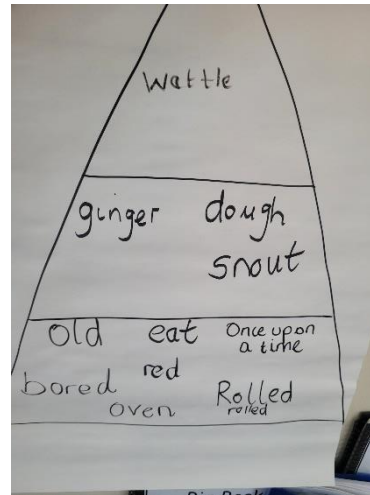 Wattle
ginger dough
snout
old eat Once upon
a time
red
bored Rolled
oven rolled